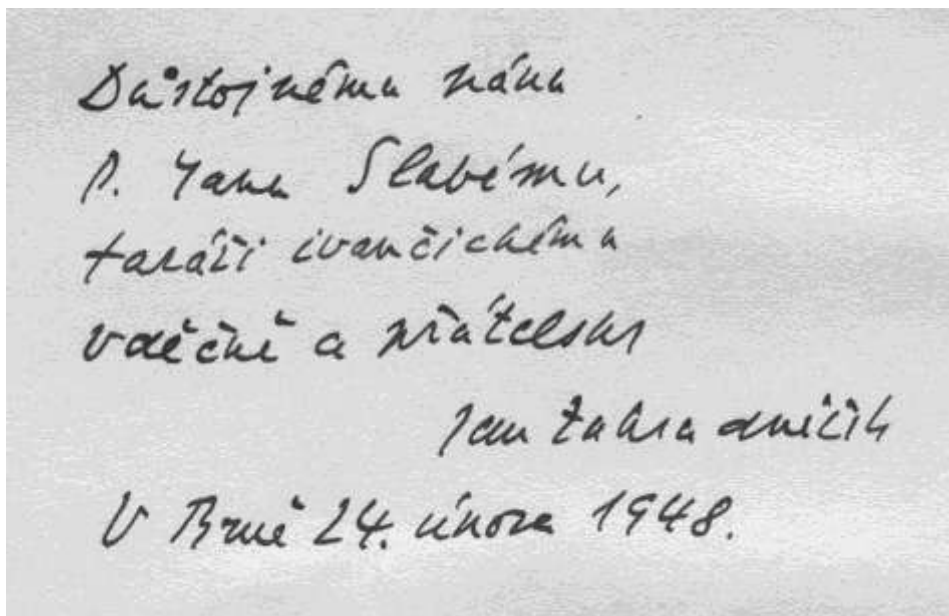 Důstojnému pánu
P. Janu Slabému,
faráři ivančickému
vděčně a přátelsky
Jan Zahradníček
V Brně 24. února 1948.